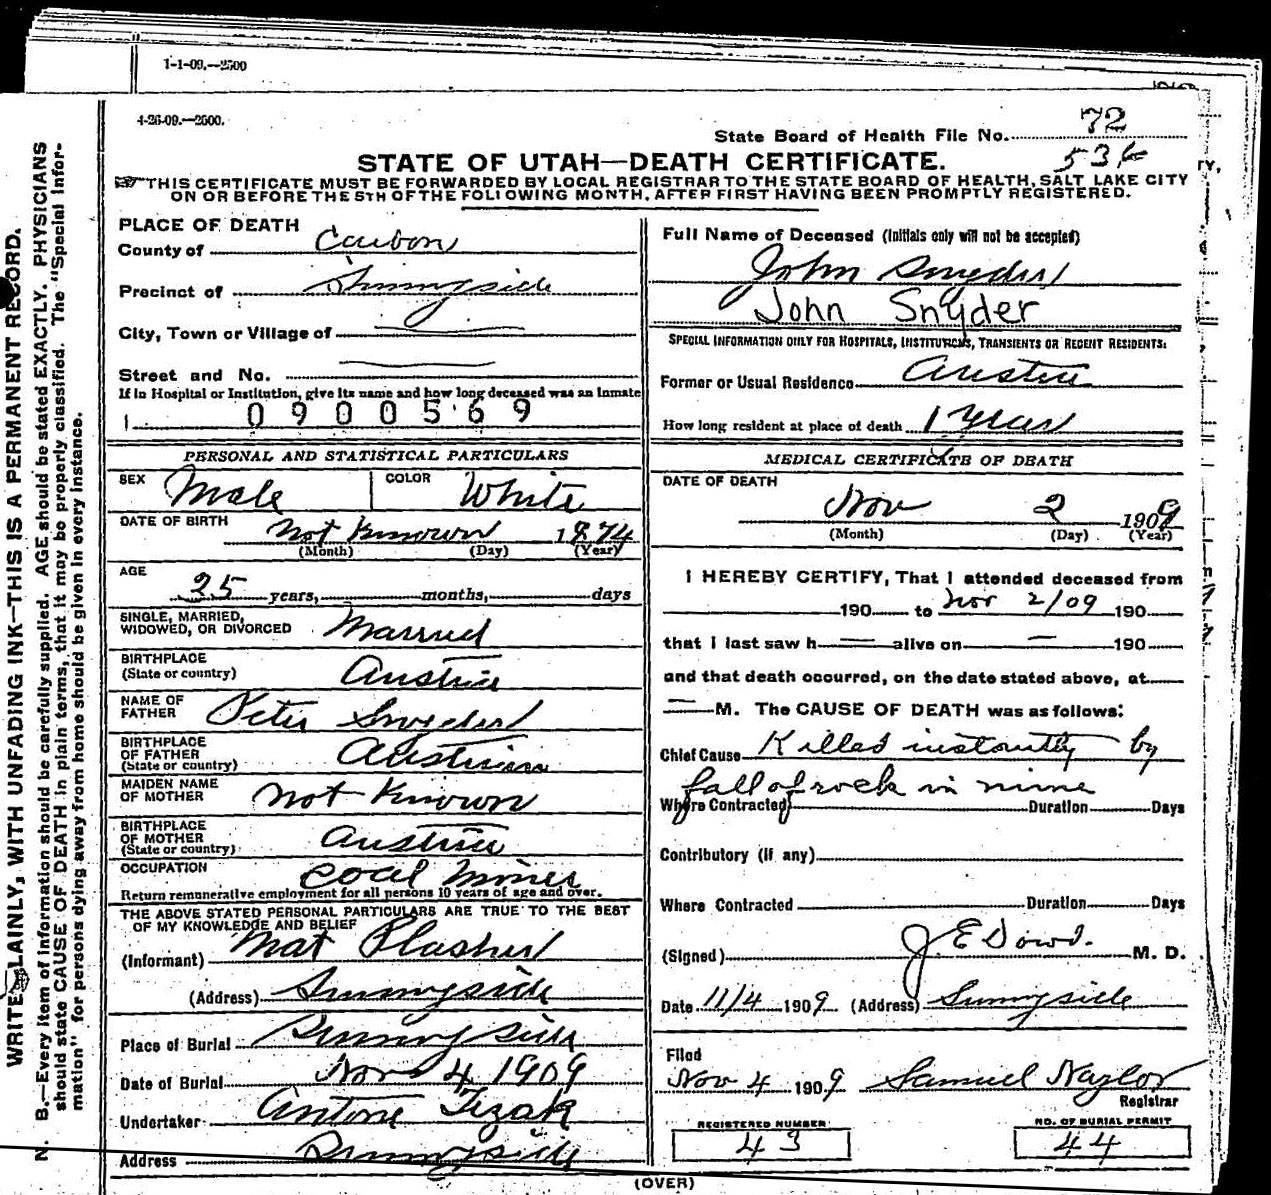 1-1-09.—2500
4-26-09.—2500.
State Board of Health File No. 72
536
STATE OF UTAH—DEATH CERTIFICATE.
THIS CERTIFICATE MUST BE FORWARDED BY LOCAL REGISTRAR TO THE STATE BOARD OF HEALTH, SALT LAKE CITY
ON OR BEFORE THE 5TH OF THE FOLLOWING MONTH, AFTER FIRST HAVING BEEN PROMPTLY REGISTERED.
WRITE PLAINLY, WITH UNFADING INK—THIS IS A PERMANENT RECORD.
N. B.—Every item of information should be carefully supplied. AGE should be stated EXACTLY. PHYSICIANS
should state CAUSE OF DEATH in plain terms, that it may be properly classified. The "Special Infor-
mation" for persons dying away from home should be given in every instance.
PLACE OF DEATH
County of Carbon
Precinct of Sunnyside
City, Town or Village of
Street and No.
If in Hospital or Institution, give its name and how long deceased was an inmate
0900569
PERSONAL AND STATISTICAL PARTICULARS
SEX Male COLOR White
DATE OF BIRTH Not Known 1874
(Month) (Day) (Year)
AGE
35 years, months, days
SINGLE, MARRIED,
WIDOWED, OR DIVORCED Married
BIRTHPLACE
(State or country) Austria
NAME OF
FATHER Peter
BIRTHPLACE
OF FATHER
(State or country) Austria
MAIDEN NAME
OF MOTHER Not Known
BIRTHPLACE
OF MOTHER
(State or country) Austria
OCCUPATION Coal Miner
Return remunerative employment for all persons 10 years of age and over.
THE ABOVE STATED PERSONAL PARTICULARS ARE TRUE TO THE BEST
OF MY KNOWLEDGE AND BELIEF
(Informant) Mat
(Address) Sunnyside
Place of Burial Sunnyside
Date of Burial Nov 4 1909
Undertaker Antone Tezak
Address Sunnyside
Full Name of Deceased (Initials only will not be accepted)
John
John Snyder
SPECIAL INFORMATION ONLY FOR HOSPITALS, INSTITUTIONS, TRANSIENTS OR RECENT RESIDENTS:
Former or Usual Residence Austria
How long resident at place of death 1 year
MEDICAL CERTIFICATE OF DEATH
DATE OF DEATH
Nov 2 1909
(Month) (Day) (Year)
I HEREBY CERTIFY, That I attended deceased from
190 to Nov 2/09 190
that I last saw h alive on 190
and that death occurred, on the date stated above, at
M. The CAUSE OF DEATH was as follows:
Chief Cause Killed instantly by
fall of rock in mine
Where Contracted Duration Days
Contributory (if any)
Where Contracted Duration Days
(Signed) J E Dowd. M. D.
Date 11/4 1909 (Address) Sunnyside
Filed
Nov 4 1909 Samuel Naylor
Registrar
REGISTERED NUMBER
43
NO. OF BURIAL PERMIT
44
(OVER)